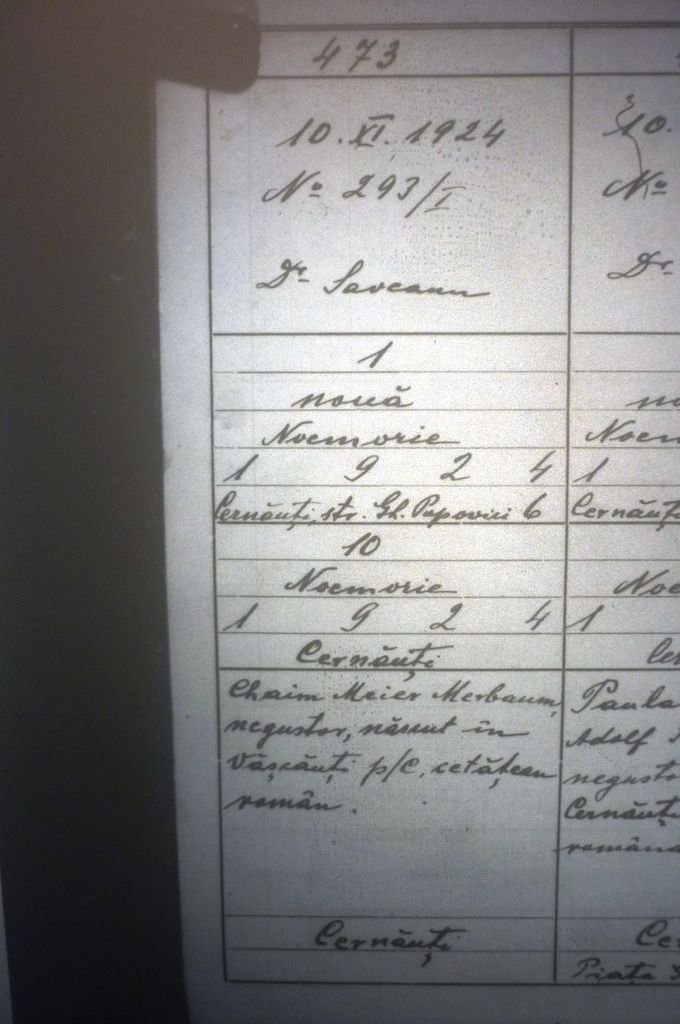 473
10. XI. 1924
No 293/I
Dr Saveanu
1
nouă
Noemvrie
1 9 2 4
Cernăuți, str. Gh. Popovici 6
10
Noemvrie
1 9 2 4
Cernăuți
Chaim Meier Merbaum,
negustor, născut în
Vășcăuți p/C. cetățean
român.
Cernăuți
10.
No
Dr
1
Cernăuți
1
Paula
Adolf
Cernăuți
Piața